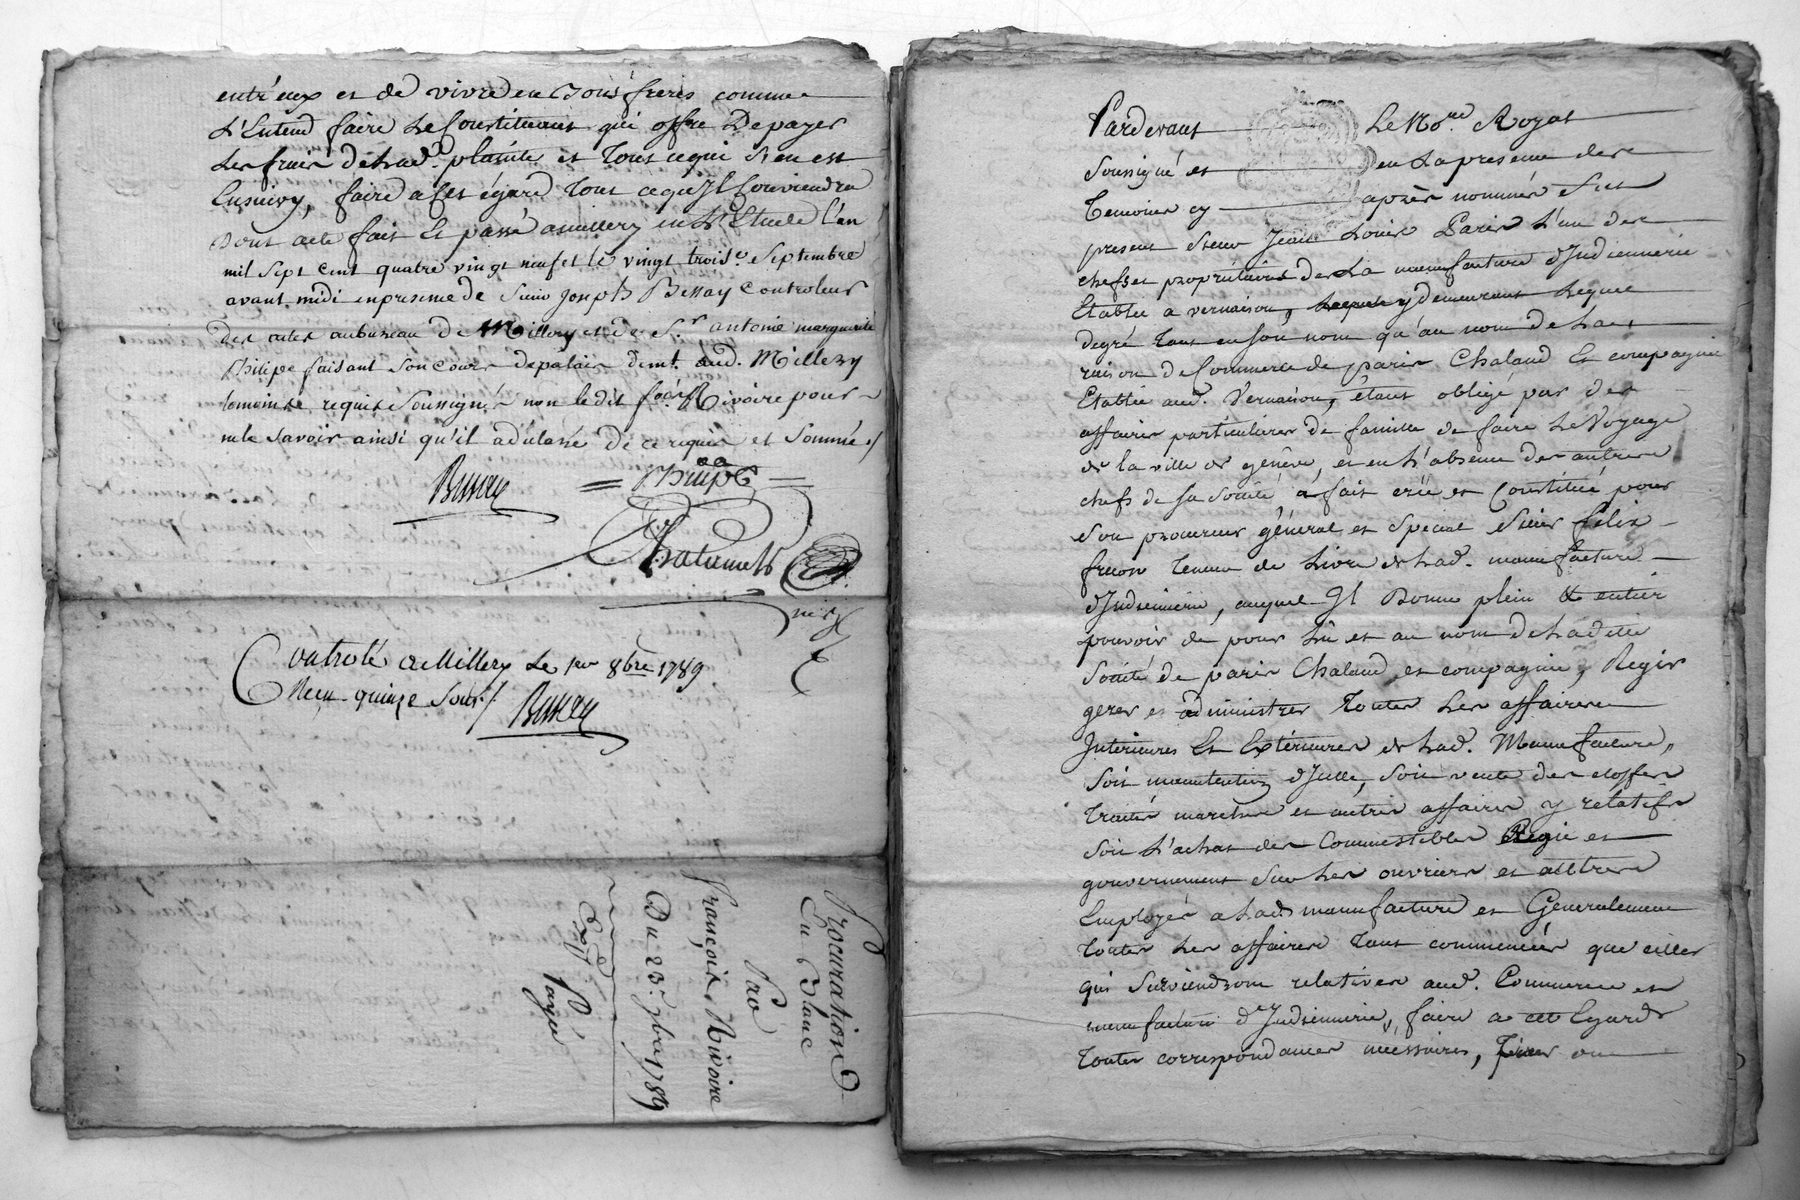 entr'eux et de vivre en bons freres comme
L'Entend faire Le Constituant qui offre De payer
Les frais de Lad. plainte et Tout ce qui s'en est
Ensuivy, faire a cet égard Tout ce qu'Il Conviendra
Dont acte fait Et passé a millery en L'Etude L'an
mil sept cent quatre vingt neuf et le vingt trois.e septembre
avant midi en presence de Sieur Joseph Bessay Controleur
Des actes au bureau De Millery et de S.r antoine marguerite
Philipe faisant son cours de palais dem.t aud. Millery
temoins requis Soussignés non le dit Rivoire pour
ne le savoir ainsi qu'il a déclaré de ce requis et sommé /
Philipe
Controlé a Millery Le 1er 8bre 1789
Recu quinze Sous /
Procuration
En Blanc
Par
François Rivoire
Du 23.e 7bre 1789
Payé
Pardevant Le No.re Royal
Soussigné et en La presence des
Temoins cy après nommés Fut
present Sieur Jean Louis Paris L'un des
chefs et proprietaires de La manufacture d'Indiennerie
Etablie a vernaison, y demeurant Lequel
de gré Tant en son nom qu'au nom de La
raison de Commerce de paris Chaland Et compagnie
Etablie aud. Vernaison, étant obligé par des
affaires particulieres de famille de faire Le Voyage
de la ville de genève, et en L'absence des autres
chefs de sa société a fait créé et Constitué pour
son procureur général et Special Sieur félix
freron Teneur de Livre de Lad. manufacture
d'Indiennerie, auquel Il Donne plein Et entier
pouvoir de pour Lui et au nom de Ladite
Société de paris Chaland et compagnie, Regir
gerer et administrer Toutes Les affaires
Interieures Et Extérieures de Lad. Manufacture,
soit manutention d'Icelle, soit vente des etoffes
Traités marchés et autres affaires y relatifs
soit L'achat des Commestibles Regie et
gouvernement sur Les ouvriers et autres
Employés a Lad. manufacture et Generalement
Toutes Les affaires Tant commencées que celles
qui Surviendront relatives aud. Commerce et
manufacture d'Indiennerie, faire a cet Egard
Toutes correspondances necessaires, Tirer ou